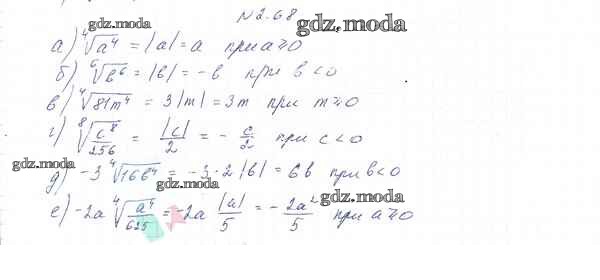 №2.68
gdz.moda
gdz.moda
а) ⁴√a⁴ = |a| = a при a ≥ 0
б) ⁶√b⁶ = |b| = -b при b < 0
в) ⁴√81m⁴ = 3|m| = 3m при m ≥ 0
г) ⁸√c⁸/256 = |c|/2 = - c/2 при c < 0
gdz.moda
gdz.moda
д) -3 ⁴√16b⁴ = -3·2|b| = 6b при b < 0
gdz.moda
gdz.moda
е) -2a ⁴√a⁴/625 = -2a |a|/5 = - 2a²/5 при a ≥ 0